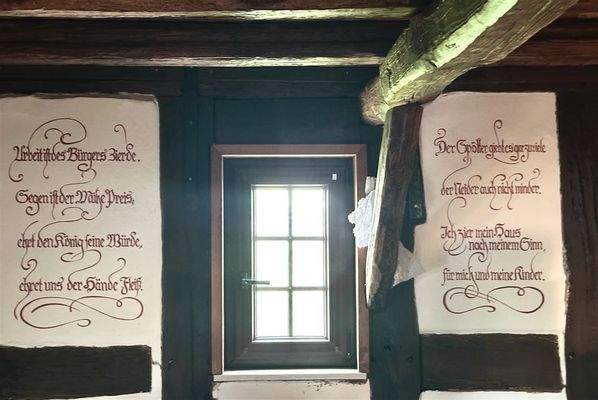 Arbeit ist des Bürgers Zierde.
Segen ist der Mühe Preis;
ehrt den König seine Würde,
ehret uns der Hände Fleiß.
Der Spötter giebt es gar zu viele
der Neider auch nicht minder.
Ich zier mein Haus
nach meinem Sinn,
für mich und meine Kinder.